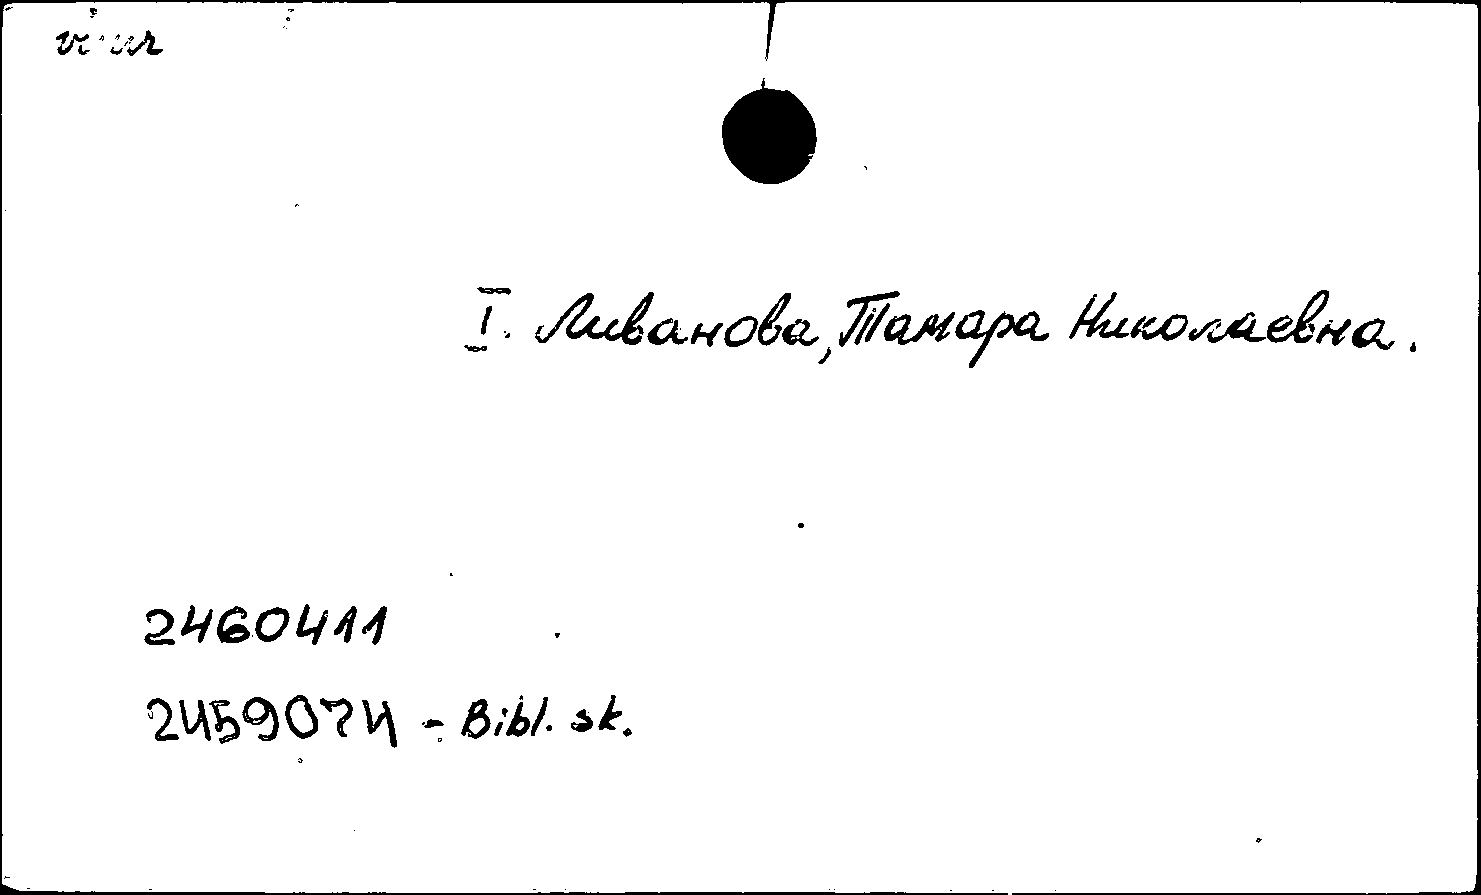 I. Ливанова, Тамара Николаевна.
2460411
2459074 - Bibl. sk.